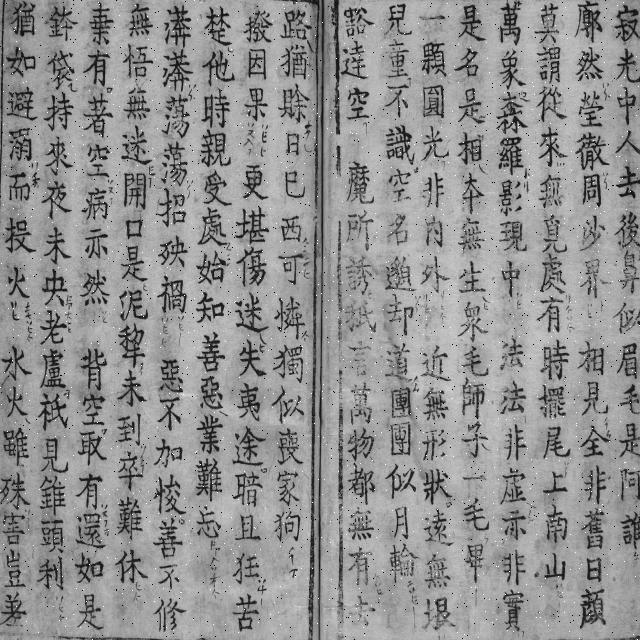 寂光中人去後鼻似眉毛是阿誰
廓然瑩徹周沙界 相見全非舊日顏
莫謂從來無見處有時擺尾上南山
萬象森羅影現中 法法非虛亦非實
是名是相本無生眾毛師子一毛畢
一顆圓光非內外 近無形狀遠無垠
兒童不識空名邈却道團團似月輪
豁達空 魔所誘 言萬物都無有
撥因果 更堪傷迷失夷途暗且狂苦
路猶賒日已西可憐獨似喪家狗
楚他時親受處始知善惡業難忘
漭漭蕩蕩招殃禍 惡不加悛善不修
無悟無迷開口是泥犁未到卒難休
棄有著空病亦然 背空取有還如是
鉢袋持來夜未央老盧祇見錐頭利
猶如避溺而投火 水火雖殊害豈異